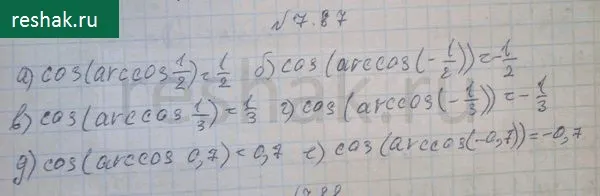 reshak.ru
№7.87
а) cos(arccos 1/2) = 1/2 б) cos(arccos(-1/2)) = -1/2
в) cos(arccos 1/3) = 1/3 г) cos(arccos(-1/3)) = -1/3
д) cos(arccos 0,7) = 0,7 е) cos(arccos(-0,7)) = -0,7
reshak.ru